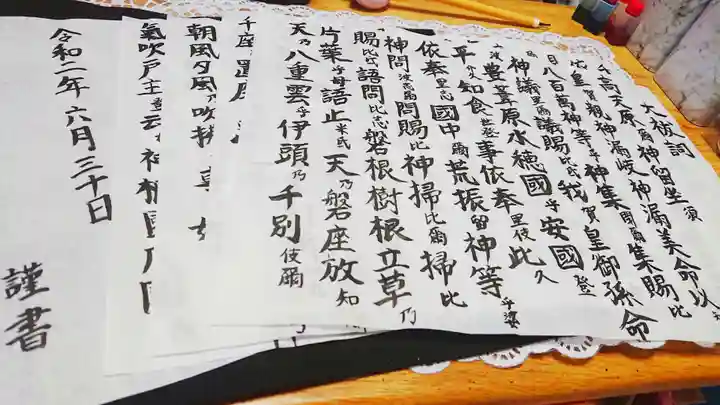 大祓詞
高天原爾神留坐須
皇賀親神漏岐神漏美命以
八百萬神等乎神集閉爾集賜比
神議里爾議賜比氐我賀皇御孫命
豊葦原水穂國乎安國登
平久知食世登事依奉里伎此久
依奉里志國中爾荒振留神等乎婆
神問波志爾問賜比神掃比爾掃比
賜比氐語問比志磐根樹根立草乃
片葉乎母語止米氐天乃磐座放知
天乃八重雲乎伊頭乃千別伎爾
千座
朝風夕風乃吹
氣吹戸主
令和二年六月三十日
謹書